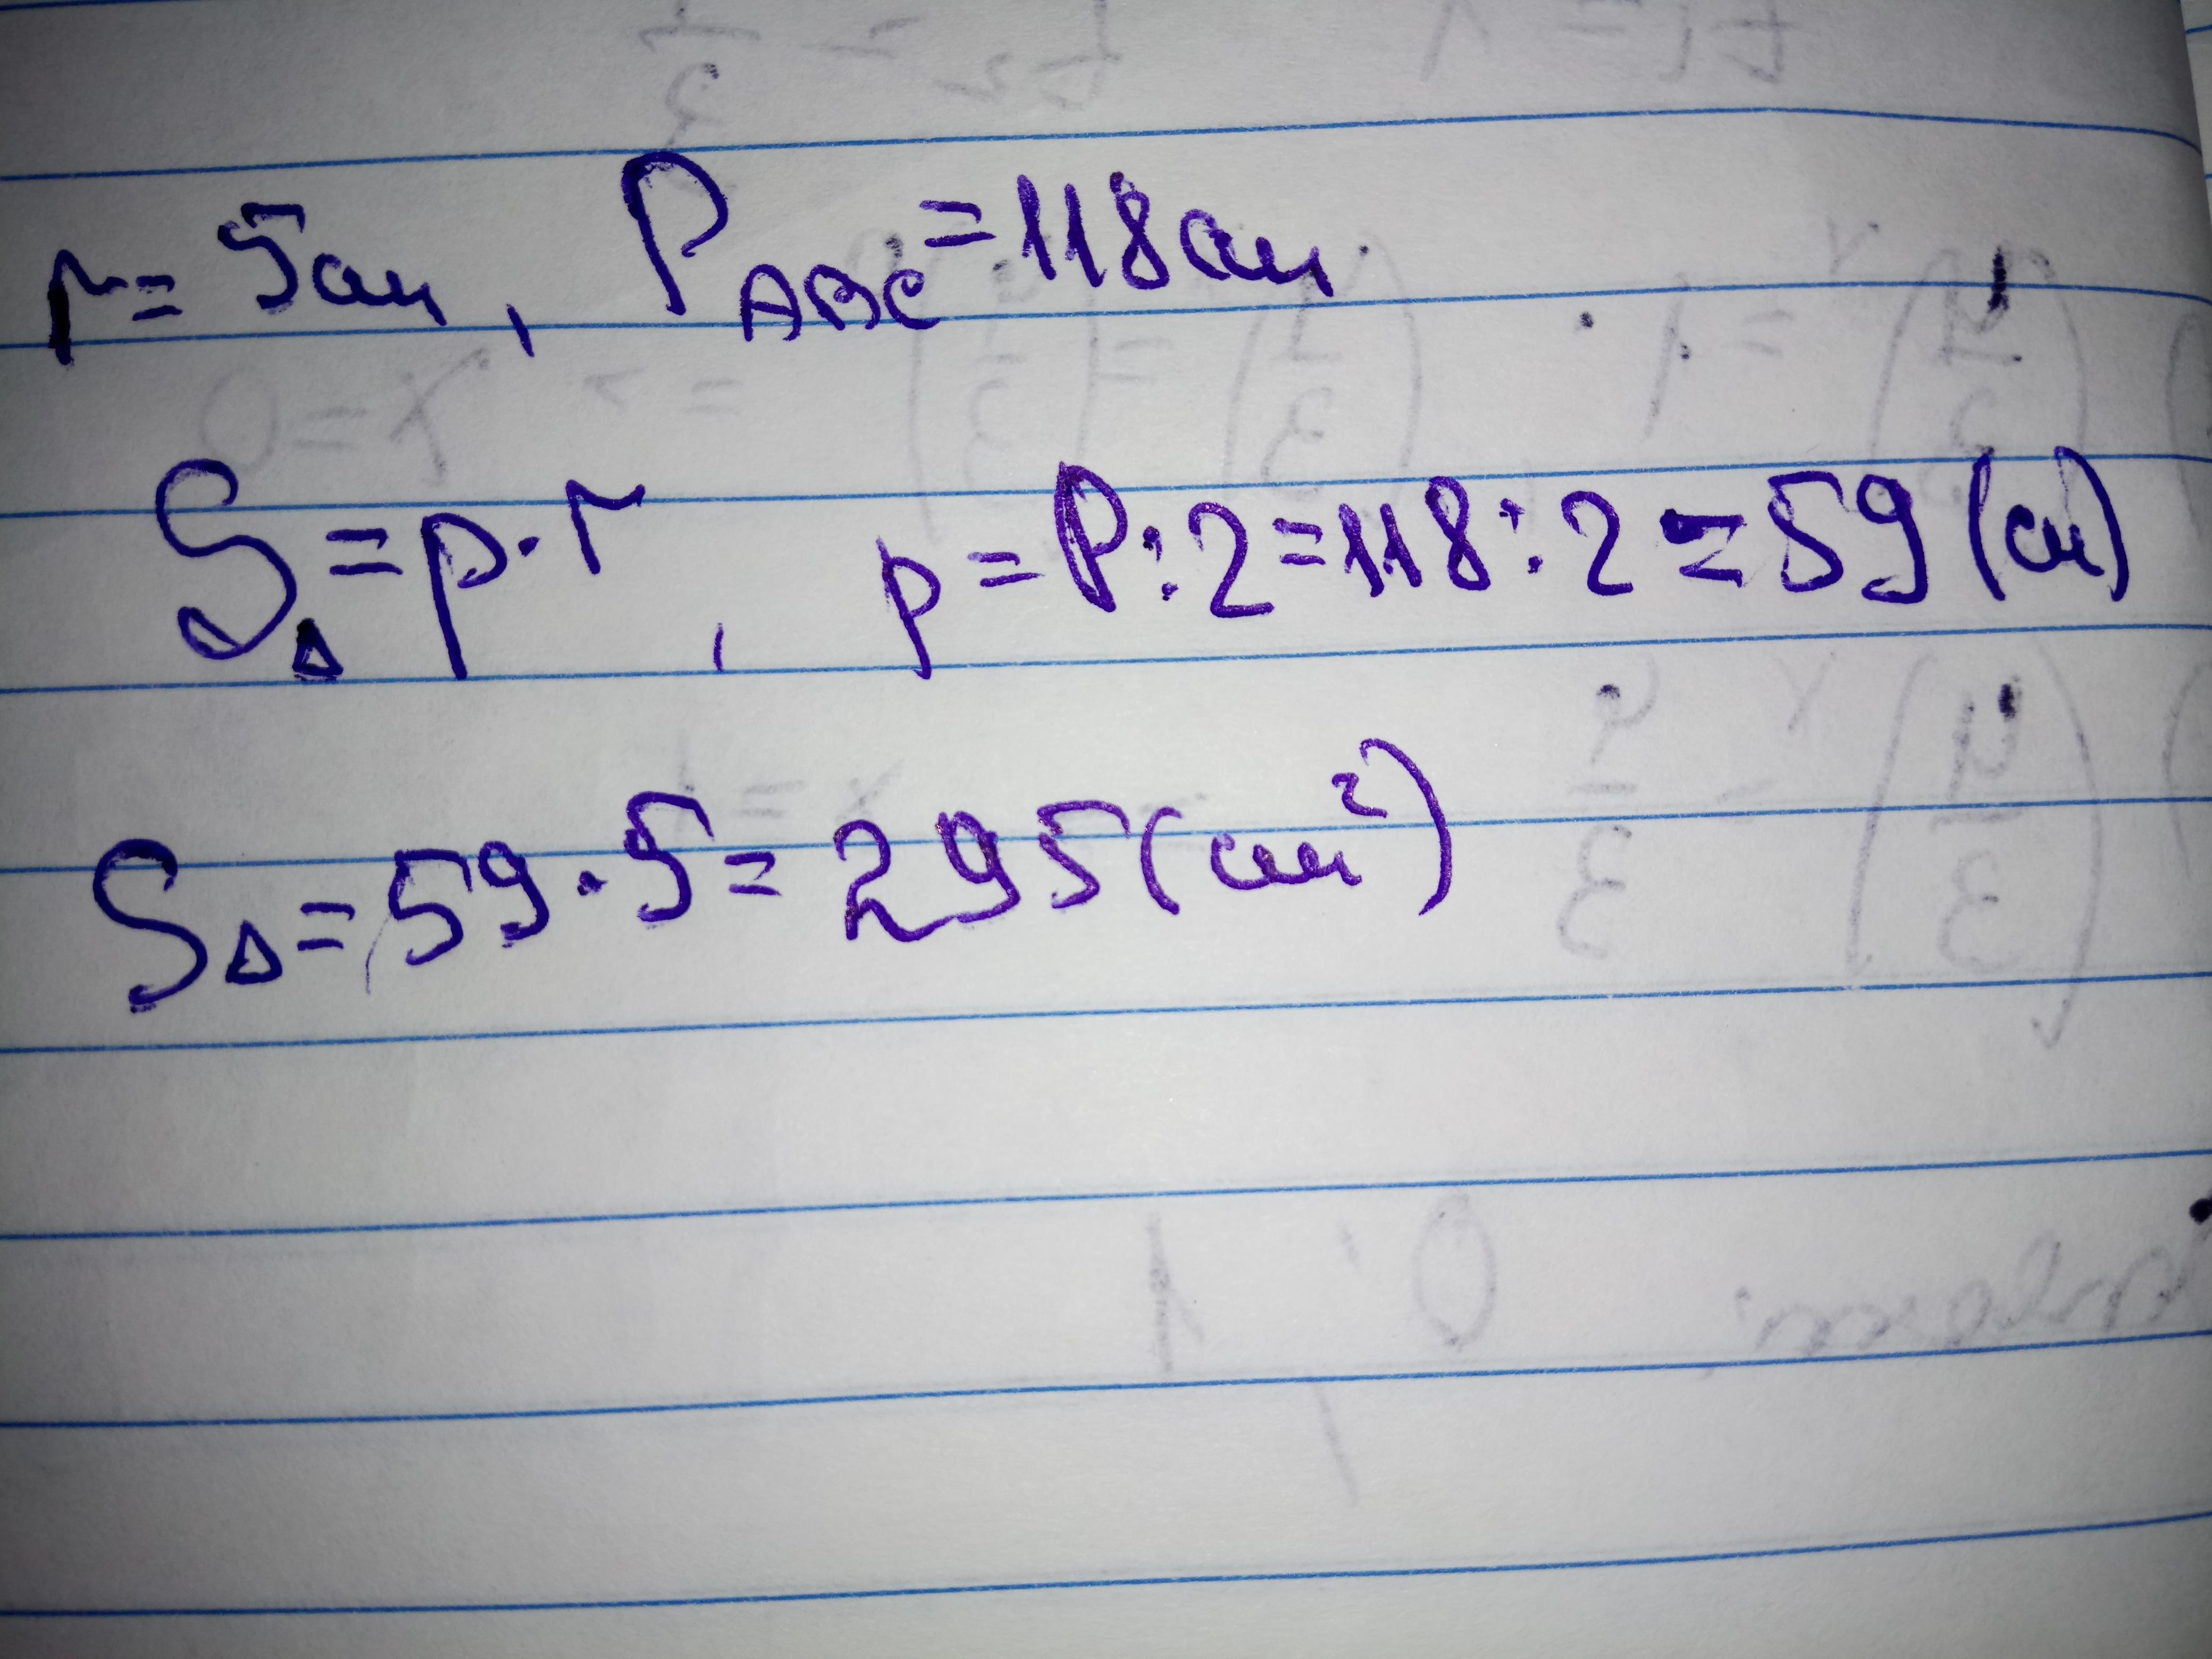 r = 5 см, P_ABC = 118 см.
S_Δ = p · r, p = P : 2 = 118 : 2 = 59 (см)
S_Δ = 59 · 5 = 295 (см²)